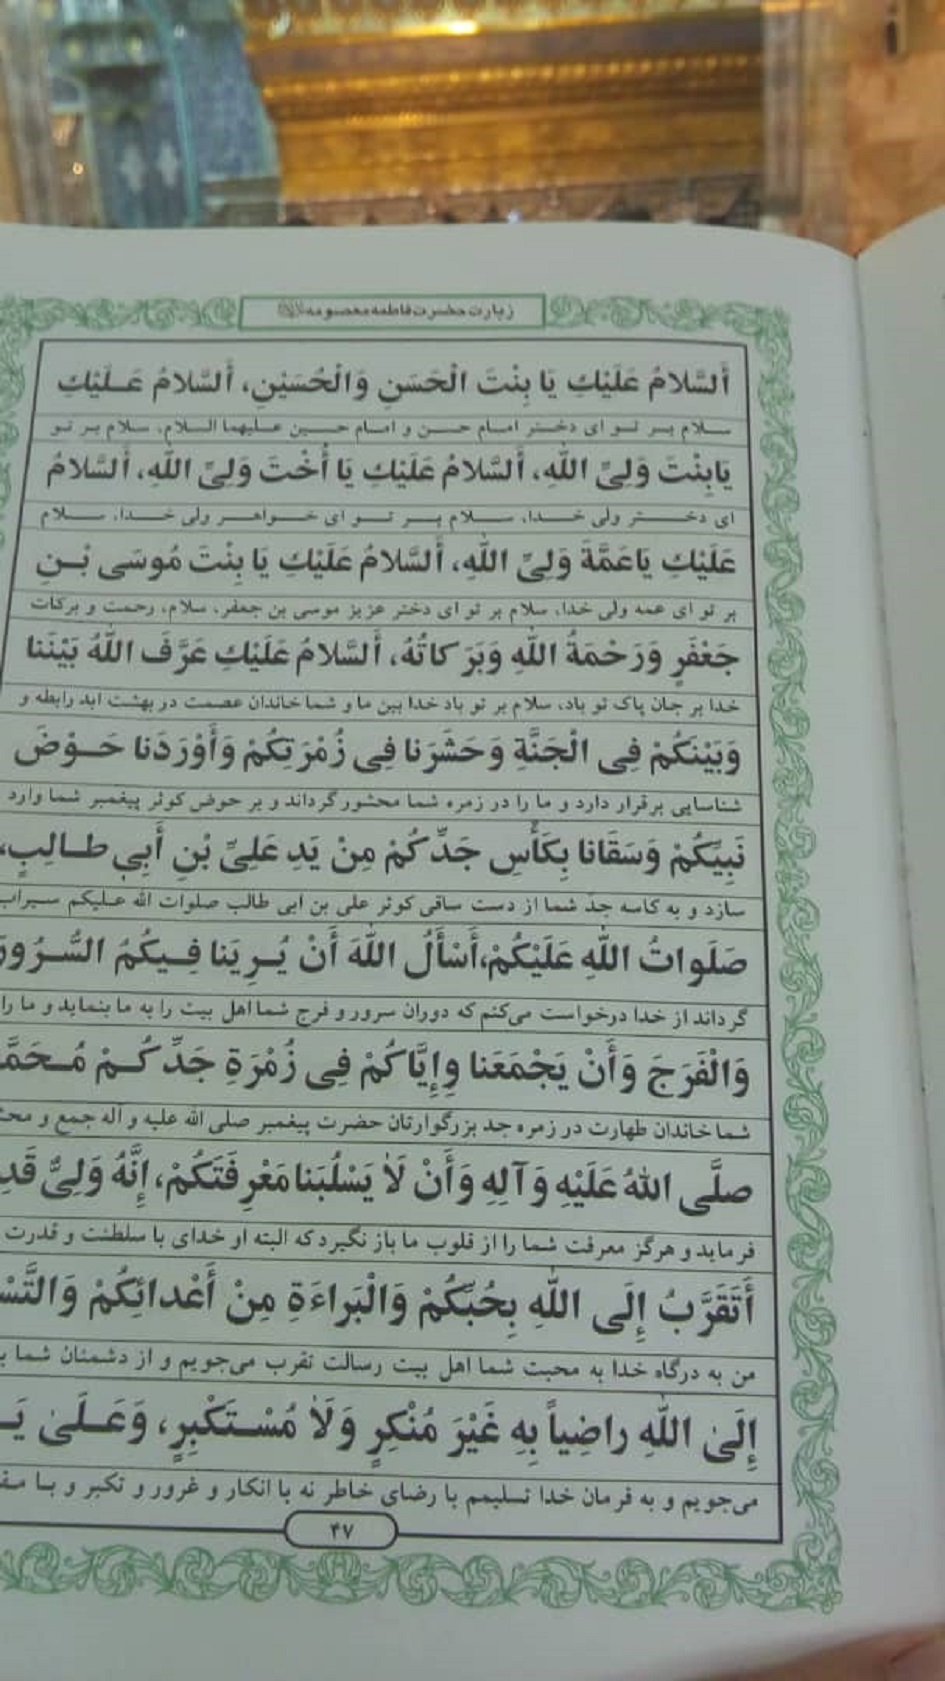 زیارت حضرت فاطمه معصومه
أَلسَّلامُ عَلَيْكِ يَا بِنْتَ الْحَسَنِ وَالْحُسَيْنِ، أَلسَّلامُ عَـلَيْكِ
سلام بر تو ای دختر امام حسن و امام حسین علیهما السلام، سلام بر تو
يَابِنْتَ وَلِيِّ اللهِ، أَلسَّلامُ عَلَيْكِ يَا أُخْتَ وَلِيِّ اللهِ، أَلسَّلامُ
ای دختر ولی خدا، سلام بر تو ای خواهر ولی خدا، سلام
عَلَيْكِ يَاعَمَّةَ وَلِيِّ اللهِ، أَلسَّلامُ عَلَيْكِ يَا بِنْتَ مُوسَى بْـنِ
بر تو ای عمه ولی خدا، سلام بر تو ای دختر عزیز موسی بن جعفر، سلام، رحمت و برکات
جَعْفَرٍ وَرَحْمَةُ اللهِ وَبَرَكاتُهُ، أَلسَّلامُ عَلَيْكِ عَرَّفَ اللهُ بَيْنَنا
خدا بر جان پاک تو باد، سلام بر تو باد خدا بین ما و شما خاندان عصمت در بهشت ابد رابطه و
وَبَيْنَكُمْ فِي الْجَنَّةِ وَحَشَرَنا فِي زُمْرَتِكُمْ وَأَوْرَدَنا حَـوْضَ
شناسایی برقرار دارد و ما را در زمره شما محشور گرداند و بر حوض کوثر پیغمبر شما وارد
نَبِيِّكُمْ وَسَقَانا بِكَأْسِ جَدِّكُمْ مِنْ يَدِ عَلِيِّ بْنِ أَبِي طـالِبٍ،
سازد و به کاسه جدّ شما از دست ساقی کوثر علی بن ابی طالب صلوات الله علیکم سیراب
صَلَواتُ اللهِ عَلَيْكُمْ،أَسْأَلُ اللهَ أَنْ يُـرِيَنا فِـيكُمُ السُّـرُورَ
گرداند از خدا درخواست می‌کنم که دوران سرور و فرج شما اهل بیت را به ما بنماید و ما را
وَالْفَرَجَ وَأَنْ يَجْمَعَنا وإِيَّاكُمْ فِي زُمْرَةِ جَدِّكُـمْ مُـحَمَّ
شما خاندان طهارت در زمره جد بزرگوارتان حضرت پیغمبر صلی الله علیه و آله جمع و
صلَّى اللهُ عَلَيْهِ وَآلِهِ وَأَنْ لاٰ يَسْلُبَنا مَعْرِفَتَكُمْ، إِنَّهُ وَلِيٌّ
فرماید و هرگز معرفت شما را از قلوب ما باز نگیرد که البته او خدای با سلطنت و قدرت
أَتَقَرَّبُ إِلَى اللهِ بِحُبِّكُمْ وَالْبَراءَةِ مِنْ أَعْدائِكُمْ
من به درگاه خدا به محبت شما اهل بیت رسالت تقرب می‌جویم و از دشمنان شما
إِلَىٰ اللهِ راضِياً بِهِ غَيْرَ مُنْكِرٍ وَلاٰ مُسْـتَكْبِرٍ، وَعَـلَىٰ
می‌جویم و به فرمان خدا تسلیمم با رضای خاطر نه با انکار و غرور و تکبر و بـا
۴۷